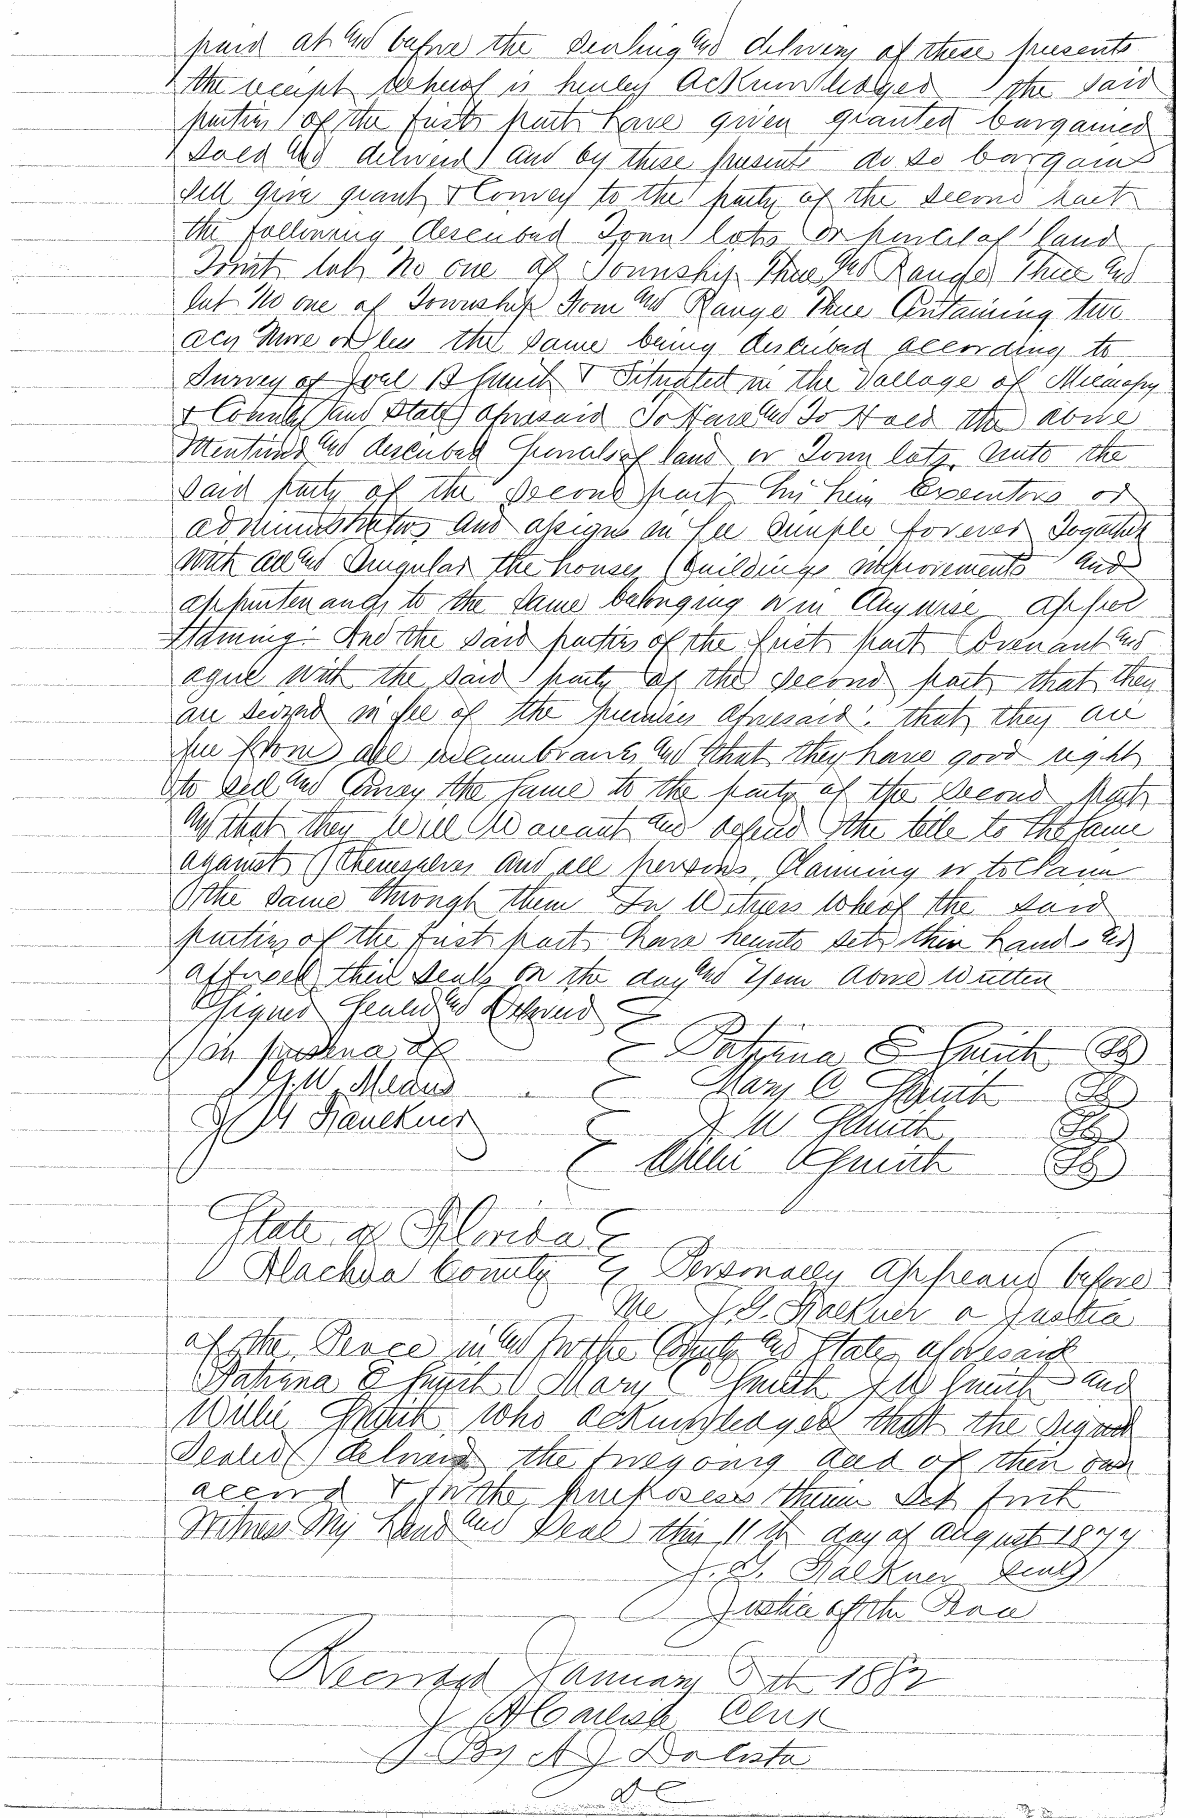 paid at and before the sealing and delivery of these presents
the receipt whereof is hereby acknowledged the said
parties of the first part have given granted bargained
sold and delivered and by these presents do so bargain
sell give grant & convey to the party of the second part
the following described Town lots or parcels of land
lot No one of Township Three and Range Three and
lot No one of Township and Range Three Containing two
more or less the same being described according to
Survey of Joel B Smith & Situated in the Village of Micanopy
& County and State aforesaid To Have and To Hold the above
Mentioned and described parcels of land or Town lots unto the
said party of the second part his heirs Executors or
administrators and assigns in fee simple forever Together
with all and Singular the houses buildings improvements and
appurtenances to the same belonging or in Anywise apper
taining. And the said parties of the first part Covenant and
agree with the said party of the second part that they
are seized in fee of the premises aforesaid: that they are
free from all incumbrances and that they have good right
to sell and Convey the same to the party of the second part
and that they will Warrant and defend the title to the same
against themselves and all persons Claiming or to Claim
the same through them In Witness Wheof the said
parties of the first part have heunto set their hands and
affixed their seals on the day and year above written
Signed Sealed and Delivered
in presence of Patjana E Smith
J.W. Means Mary C Smith
J G Faulkner J W Smith
Willie Smith
State of Florida
Alachua County Personally appeared before
Me J.G. Falkner a Justice
of the Peace in and for the County and State aforesaid
Patjana E Smith Mary C Smith J W Smith and
Willie Smith who acknowledged that the signed
Sealed delivered the foregoing deed of their own
accord & for the purposes therein set forth
Witness My hand and seal this 11th day of August 1877
J. G. Falkner seal
Justice of the Peace
Recorded January 5th 1882
J A Carlisle Clerk
By A J DaCosta
DC